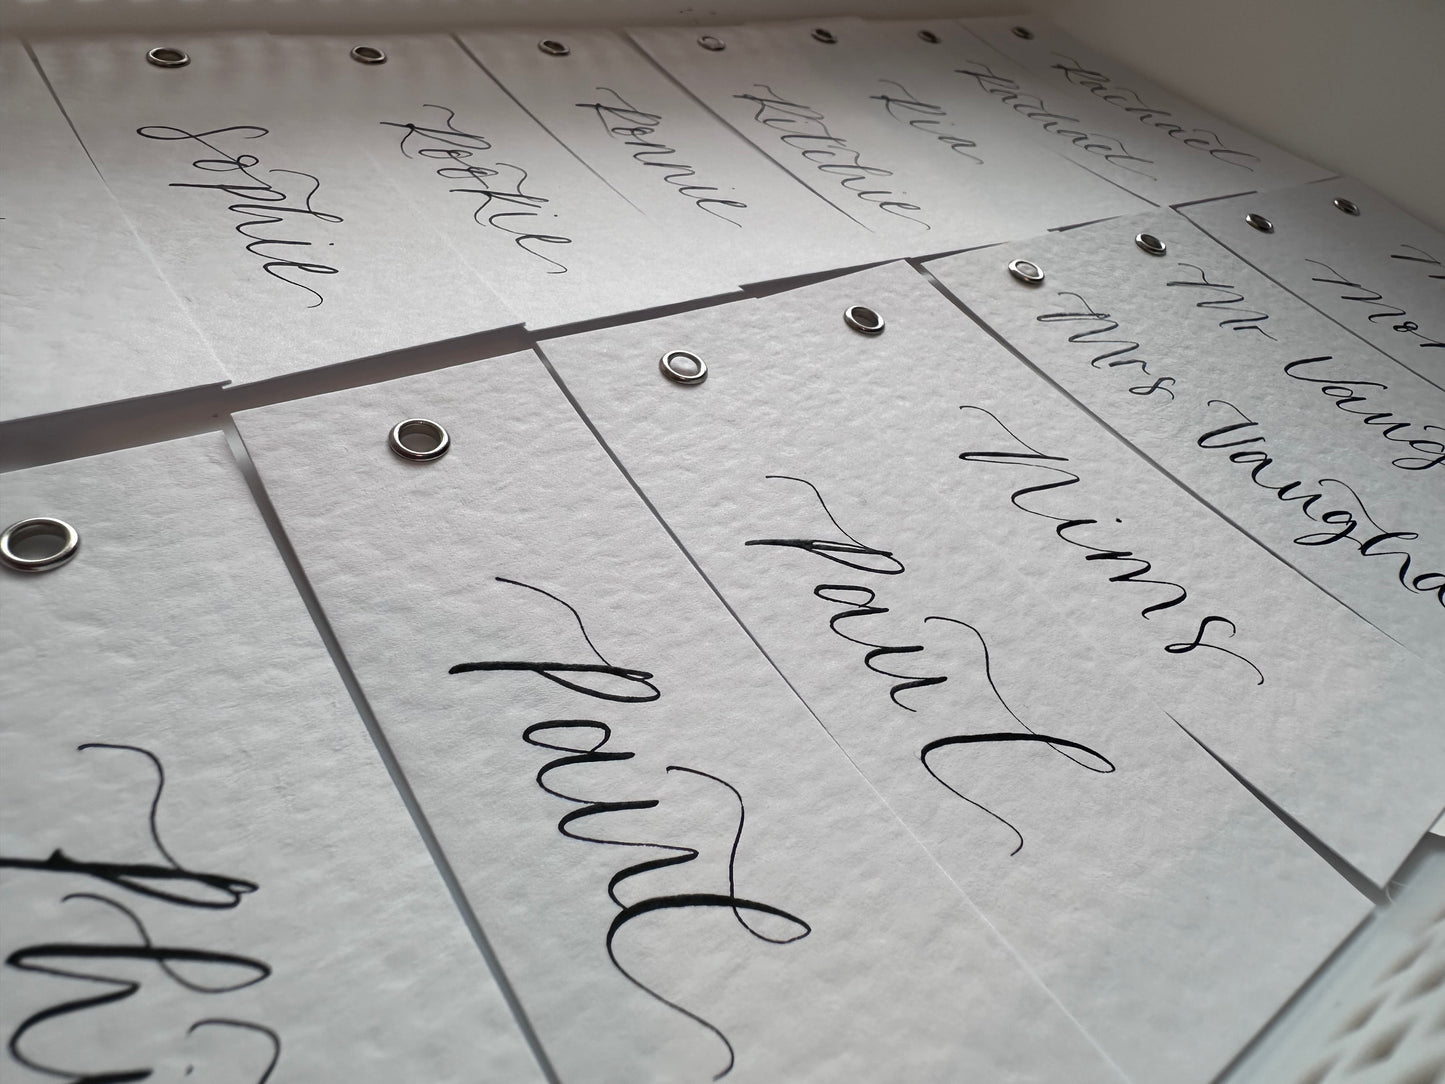 Sophie
Rookie
Ronnie
Ritchie
Ria
Rachael
Rachael
Phi
Paul
Paul
Nims
Mrs Vaugha
Mr Vaug
Mor